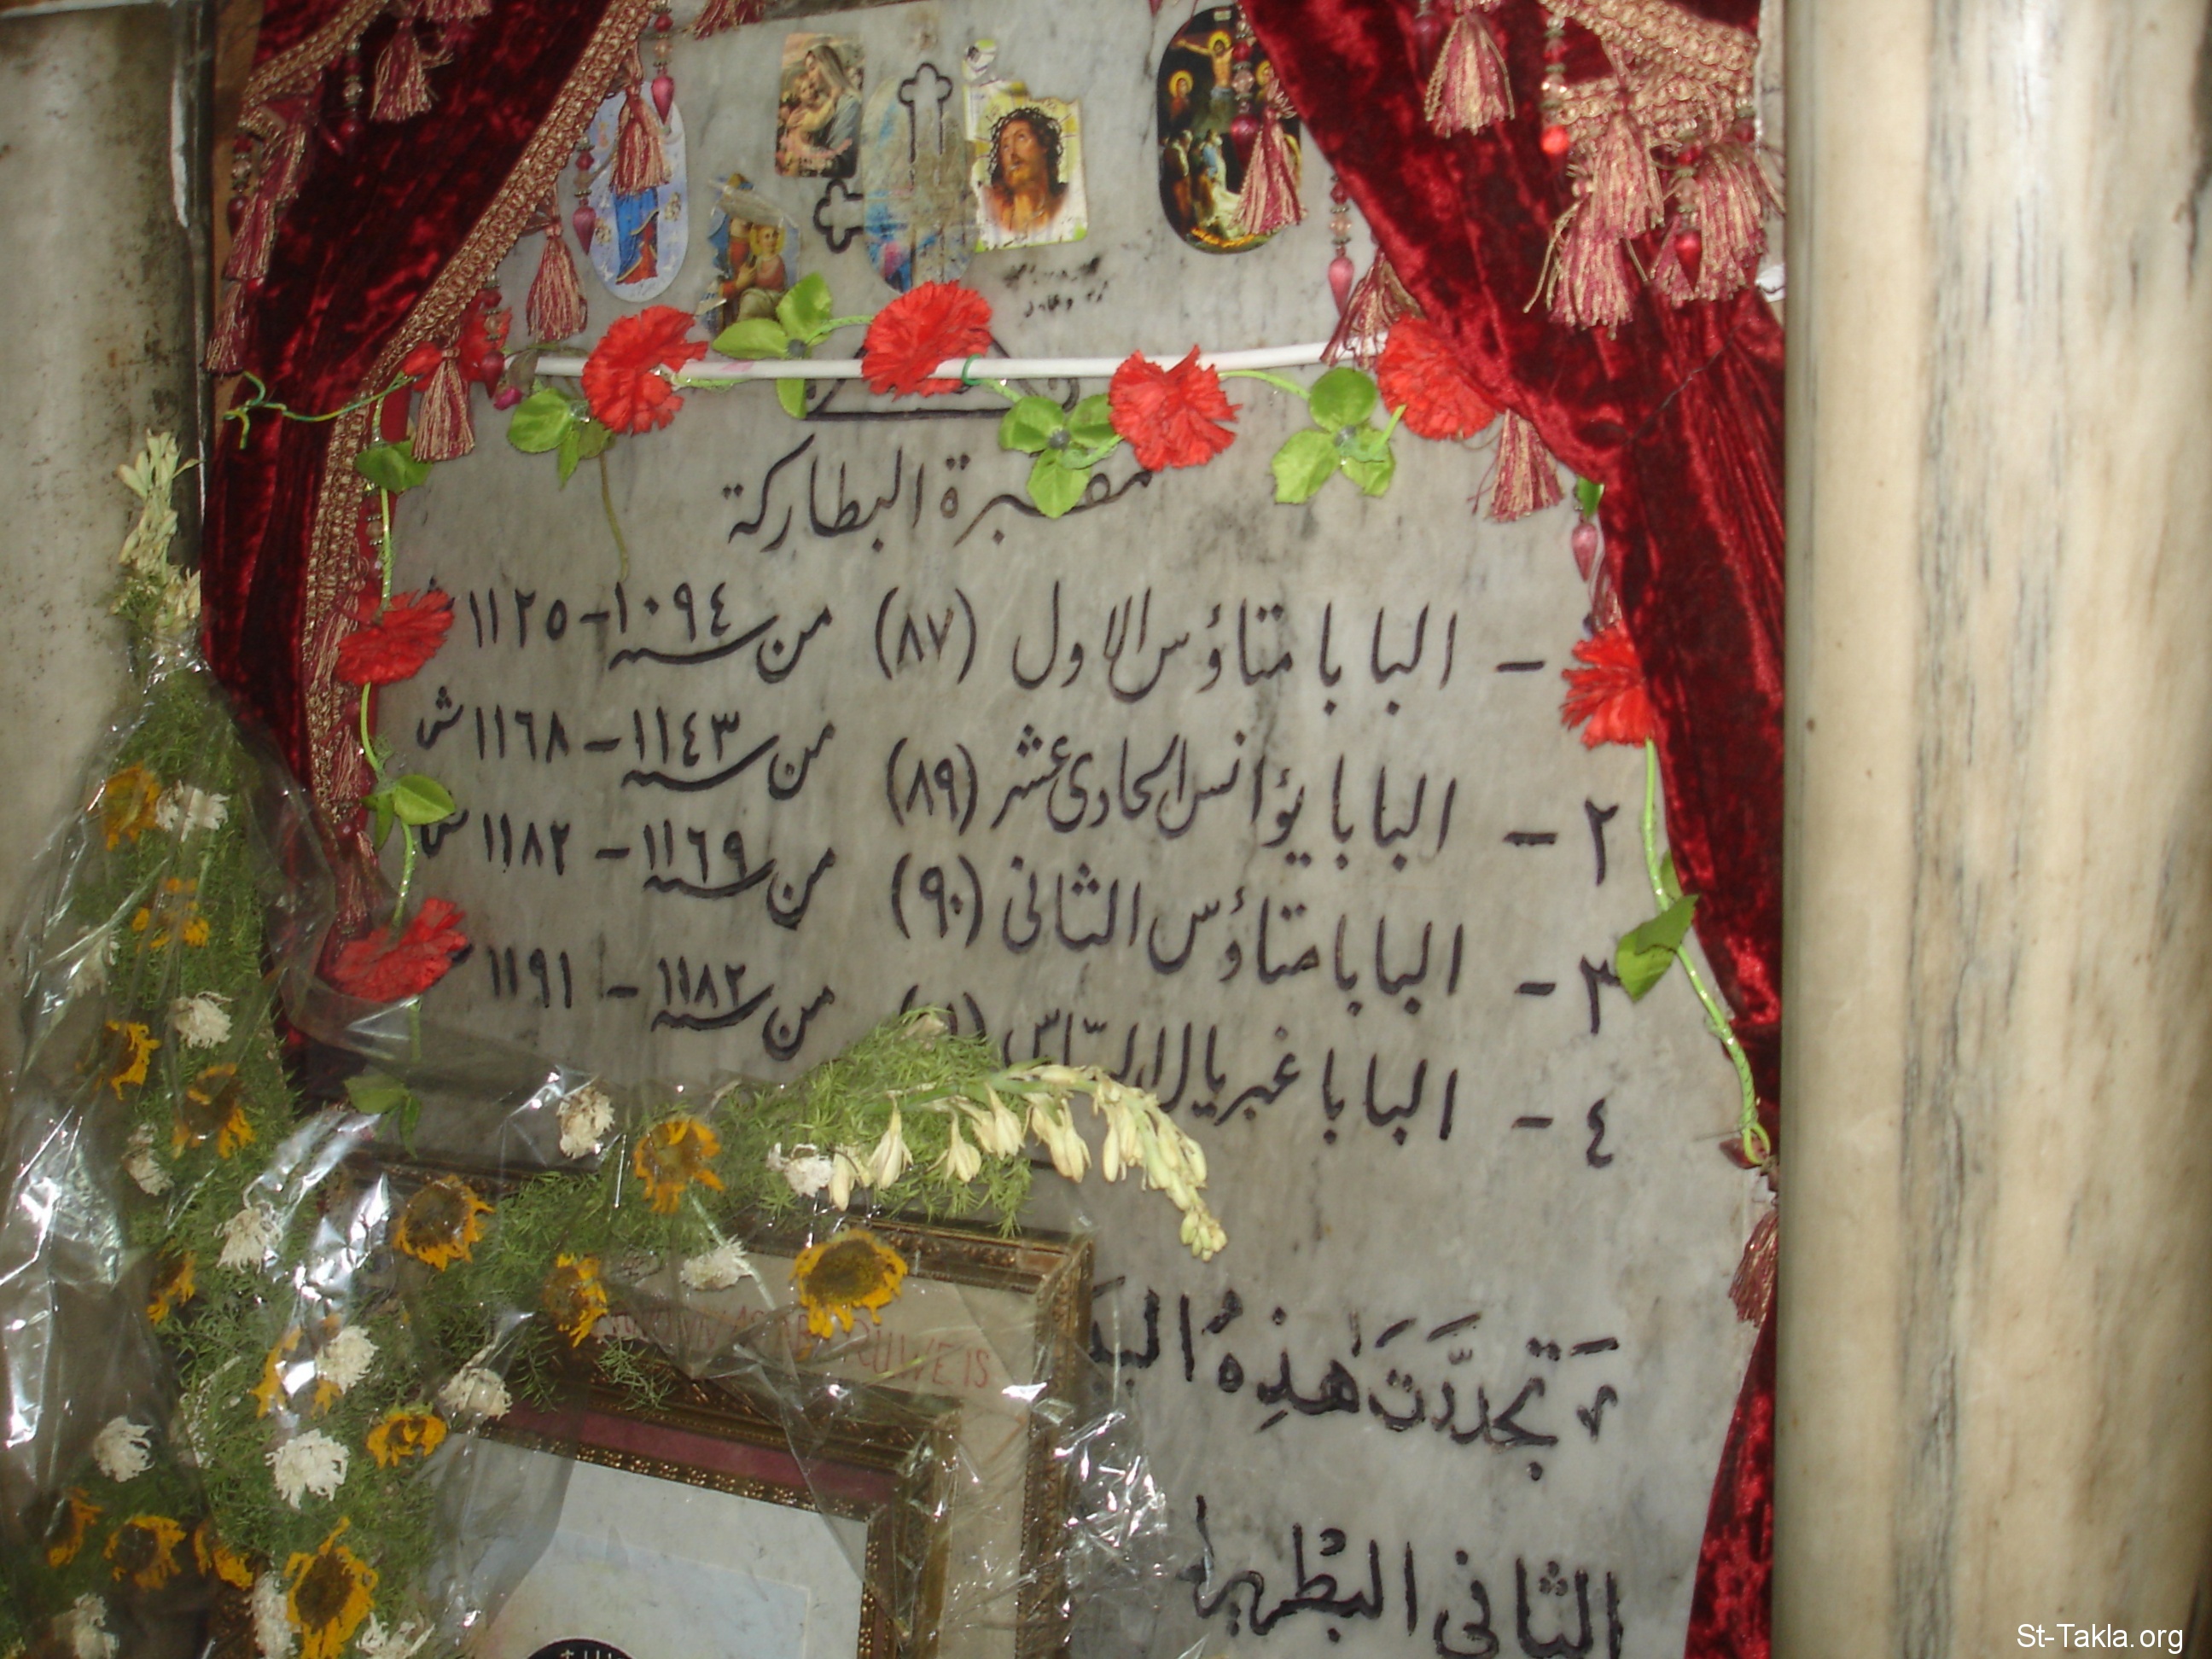 مقبرة البطاركة
- البابا متاؤس الاول (٨٧) من سنة ١٠٩٤ - ١١٢٥ ش
٢ - البابا يؤانس الحادى عشر (٨٩) من سنة ١١٤٣ - ١١٦٨ ش
٣ - البابا متاؤس الثانى (٩٠) من سنة ١١٦٩ - ١١٨٢ ش
٤ - البابا غبريال من سنة ١١٨٢ - ١١٩١
تجدَّدَت هٰذِهُ
الثانى
St-Takla.org